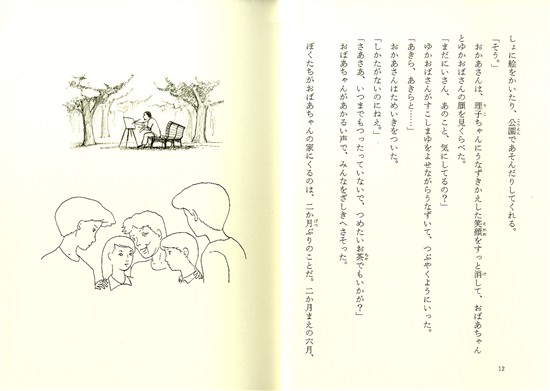 しょに絵をかいたり、公園であそんだりしてくれる。
「そう。」
おかあさんは、理子ちゃんにうなずきかえした笑顔をすっと消して、おばあちゃん
とゆかおばさんの顔を見くらべた。
「まだにいさん、あのこと、気にしてるの？」
ゆかおばさんがすこしまゆをよせながらうなずいて、つぶやくようにいった。
「あきら、あきらと……」
おかあさんはためいきをついた。
「しかたがないのにねえ。」
「さあさあ、いつまでもつったっていないで、つめたいお茶でもいかが？」
おばあちゃんがあかるい声で、みんなをざしきへさそった。
ぼくたちがおばあちゃんの家にくるのは、二か月ぶりのことだ。二か月まえの六月、
12